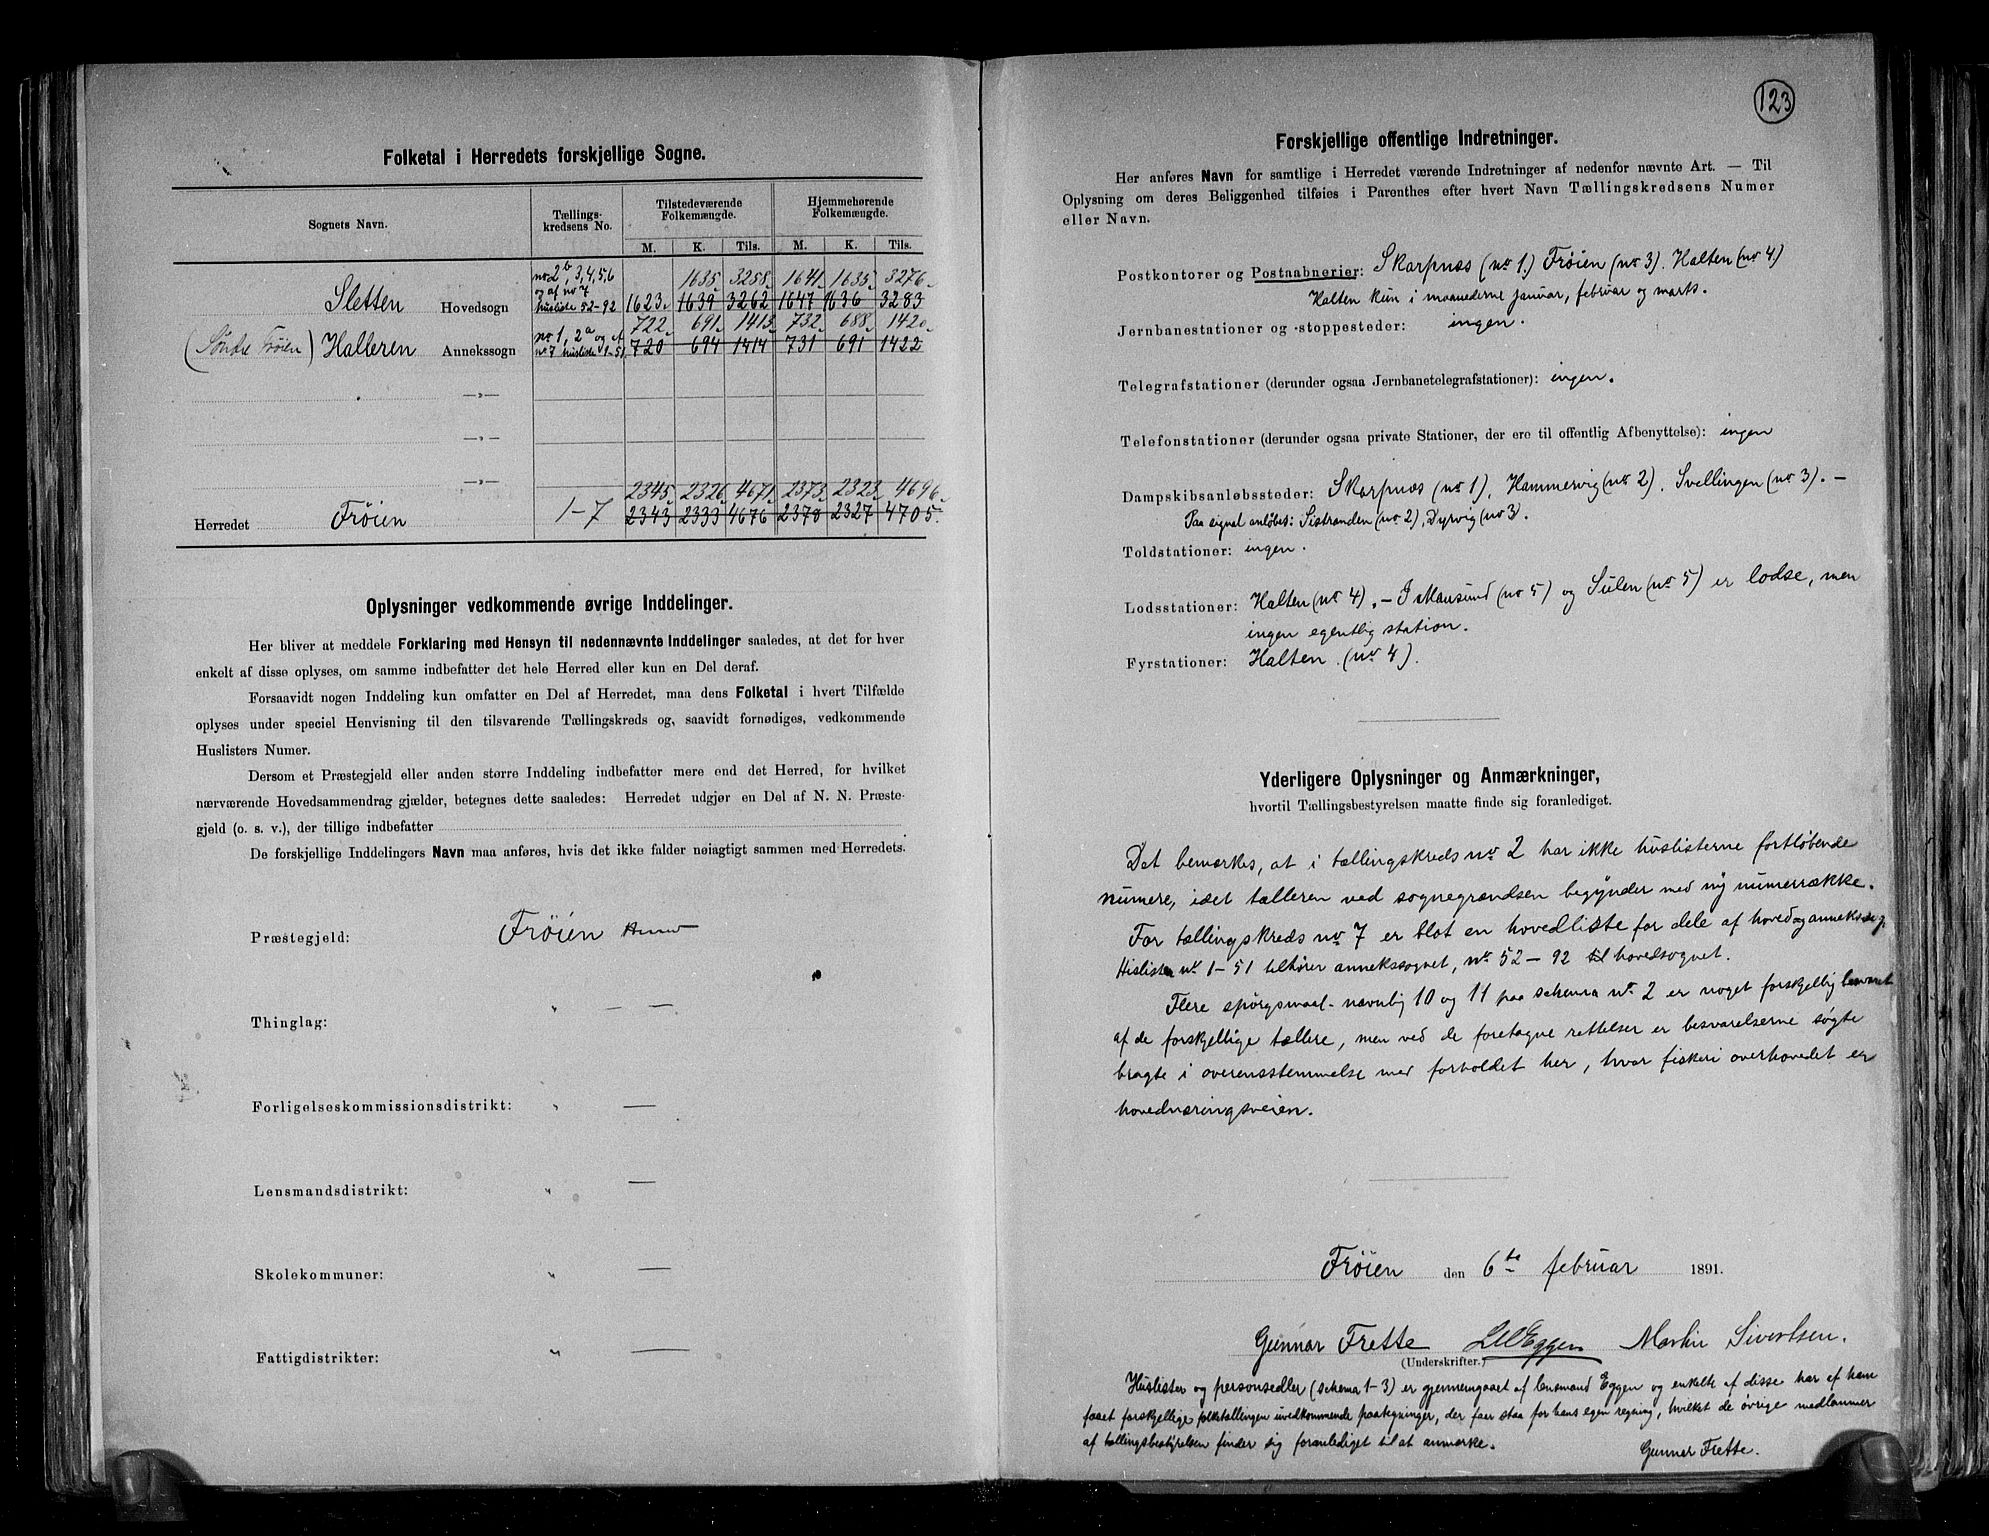 Folketal i Herredets forskjellige Sogne.
Sognets Navn.
Tællings-
kredsens No.
Tilstedeværende
Folkemængde.
Hjemmehørende
Folkemængde.
M. K. Tils. M. K. Tils.
no 2b, 3, 4, 5, 6 1635 3258 1641 1635 3276
og af no 7
Sletten Hovedsogn husliste 52-92 1623 1639 3262 1647 1636 3283
722 691 1413 732 688 1420
(Söndre Fröien) Halteren Annekssogn no 1, 2a og af
no 7 husliste 1-51 720 694 1414 731 691 1422
—„—
—„—
—„—
2345 2326 4671 2373 2323 4696
Herredet Fröien 1-7 2343 2333 4676 2378 2327 4705.
Oplysninger vedkommende øvrige Inddelinger.
Her bliver at meddele Forklaring med Hensyn til nedennævnte Inddelinger saaledes, at det for hver
enkelt af disse oplyses, om samme indbefatter det hele Herred eller kun en Del deraf.
Forsaavidt nogen Inddeling kun omfatter en Del af Herredet, maa dens Folketal i hvert Tilfælde
oplyses under speciel Henvisning til den tilsvarende Tællingskreds og, saavidt fornødiges, vedkommende
Huslisters Numer.
Dersom et Præstegjeld eller anden større Inddeling indbefatter mere end det Herred, for hvilket
nærværende Hovedsammendrag gjælder, betegnes dette saaledes: Herredet udgjør en Del af N. N. Præste-
gjeld (o. s. v.), der tillige indbefatter
De forskjellige Inddelingers Navn maa anføres, hvis det ikke falder nøiagtigt sammen med Herredets.
Præstegjeld: Fröien
Thinglag: „ — —
Forligelseskommissionsdistrikt: „ —
Lensmandsdistrikt: „ —
Skolekommuner: „ —
Fattigdistrikter: „ —
123
Forskjellige offentlige Indretninger.
Her anføres Navn for samtlige i Herredet værende Indretninger af nedenfor nævnte Art. — Til
Oplysning om deres Beliggenhed tilføies i Parenthes efter hvert Navn Tællingskredsens Numer
eller Navn.
Postkontorer og Postaabnerier: Skarpnæs (no 1.) Fröien (no 3). Halten (no 4)
Halten kun i maanederne januar, februar og marts.
Jernbanestationer og -stoppesteder: ingen.
Telegrafstationer (derunder ogsaa Jernbanetelegrafstationer): ingen.
Telefonstationer (derunder ogsaa private Stationer, der ere til offentlig Afbenyttelse): ingen
Dampskibsanløbssteder: Skarpnæs (no 1), Hammervig (no 2). Svellingen (no 3). —
Paa signal anlöbes: Sistranden (no 2), Dyrvig (no 3.
Toldstationer: ingen.
Lodsstationer: Halten (no 4). — I Mausund (no 5) og Sulen (no 5) er lodse, men
ingen egentlig station.
Fyrstationer: Halten (no 4).
Yderligere Oplysninger og Anmærkninger,
hvortil Tællingsbestyrelsen maatte finde sig foranlediget.
Det bemærkes, at i tællingskreds no 2 har ikke huslisterne fortløbende
numere, idet tælleren ved sognegrændsen begynder med ny numerrække.
For tællingskreds no 7 er blot en hovedliste for dele af hoved og annekssog
Hislister no 1-51 tilhører annekssognet, no 52-92 til hovedsognet.
Flere spörgsmaal navnlig 10 og 11 paa schema no 2 er noget forskjellig besvaret
af de forskjellige tællere, men ved de foretagne rettelser er besvarelserne søgte
bragte i overensstemmelse med forholdet her, hvor fiskeri overhovedet er
hovednæringsveien.
Fröien den 6te februar 1891.
Gunnar Frette Eggen Martin Sivertsen.
(Underskrifter.)
Huslister og personsedler (schema 1-3) er gjennemgaaet af lensmand Eggen og enkelte af disse har af ham
faaet forskjellige folketællingen uvedkommende paategninger, der faar staa for hans egen regning, hvilket de øvrige medlemmer
af tællingsbestyrelsen finder sig foranlediget til at anmærke.
Gunnar Frette.